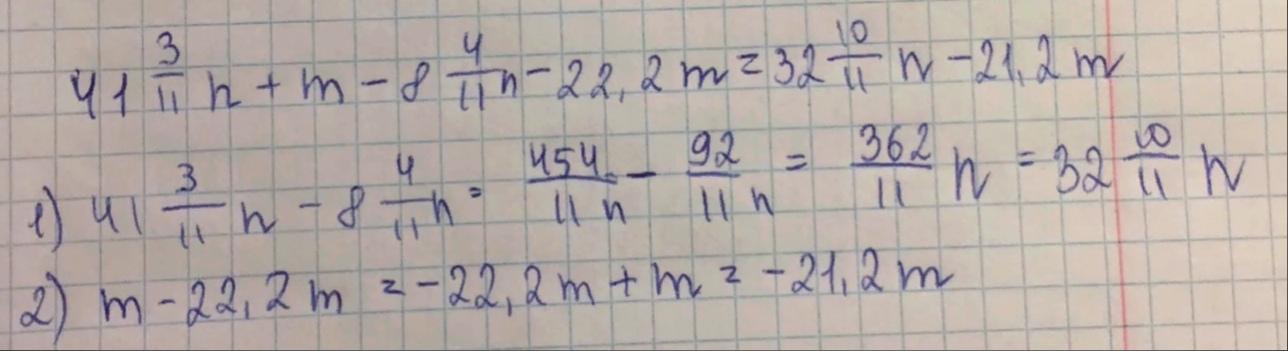 41 3/11 n + m - 8 4/11 n - 22,2 m = 32 10/11 n - 21,2 m
1) 41 3/11 n - 8 4/11 n = 454/11 n - 92/11 n = 362/11 n = 32 10/11 n
2) m - 22,2 m = -22,2 m + m = -21,2 m